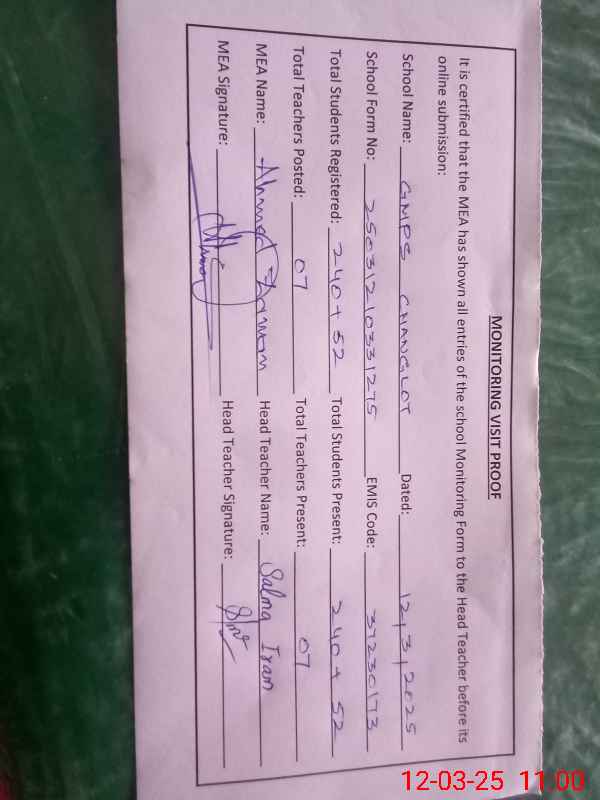 MONITORING VISIT PROOF
It is certified that the MEA has shown all entries of the school Monitoring Form to the Head Teacher before its
online submission:
School Name: GMPS CHANGLOT Dated: 12,3,2025
School Form No: 25031210331275 EMIS Code: 37230173
Total Students Registered: 240+52 Total Students Present: 240+52
Total Teachers Posted: 07 Total Teachers Present: 07
MEA Name: Ahmed Zaman Head Teacher Name: Salma Iram
MEA Signature: Head Teacher Signature:
12-03-25 11:00